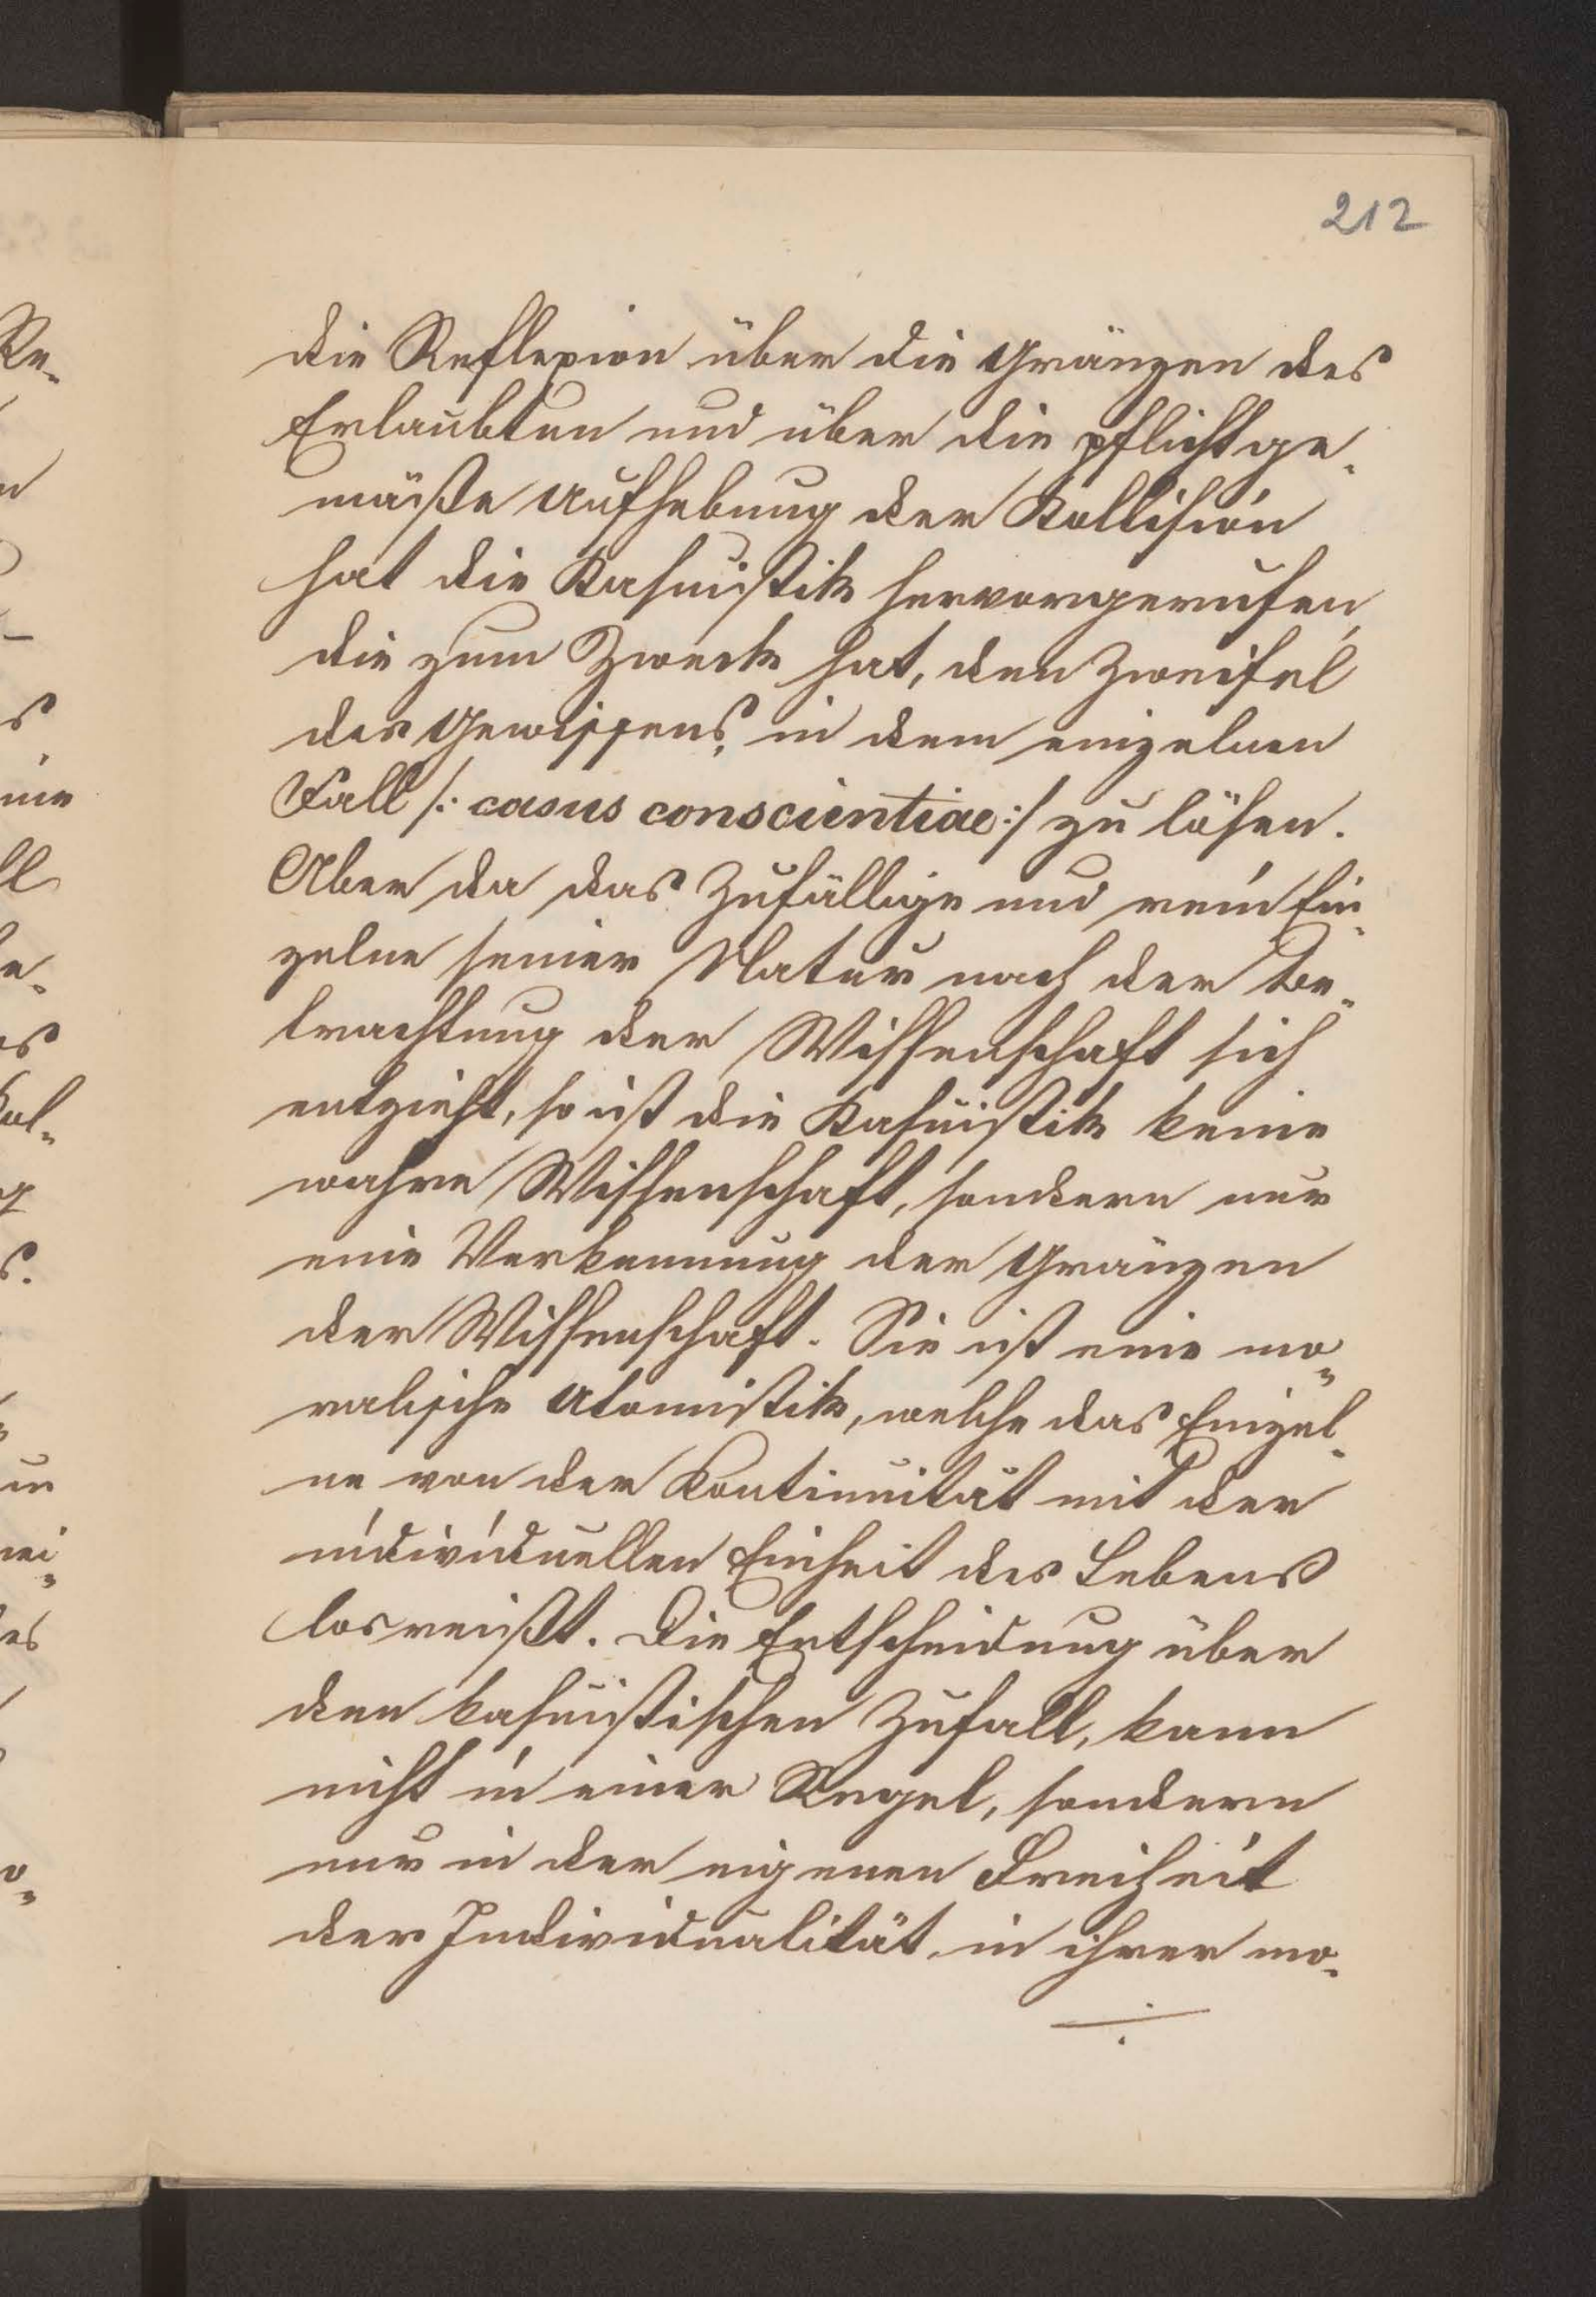 212
die Reflexion über die Gränzen des
Erlaubten und über die pflichtge-
mäße Aufhebung der Kollision
hat die Kasuistik hervorgerufen,
die zum Zweck hat, den Zweifel
des Gewissens, in dem einzelnen
Fall /: casus conscientiae :/ zu lösen.
Aber da das Zufällige und rein Ein-
zelne seiner Natur nach der Be-
trachtung der Wissenschaft sich
entzieht, so ist die Kasuistik keine
wahre Wissenschaft, sondern nur
eine Verkennung der Gränzen
der Wissenschaft. Sie ist eine mo-
ralische Atomistik, welche das Einzel-
ne von der Kontinuität mit der
individuellen Einheit des Lebens
losreißt. Die Entscheidung über
den kasuistischen Zufall, kann
nicht in einer Regel, sondern
nur in der eigenen Freiheit
der Individualität, in ihrer mo-